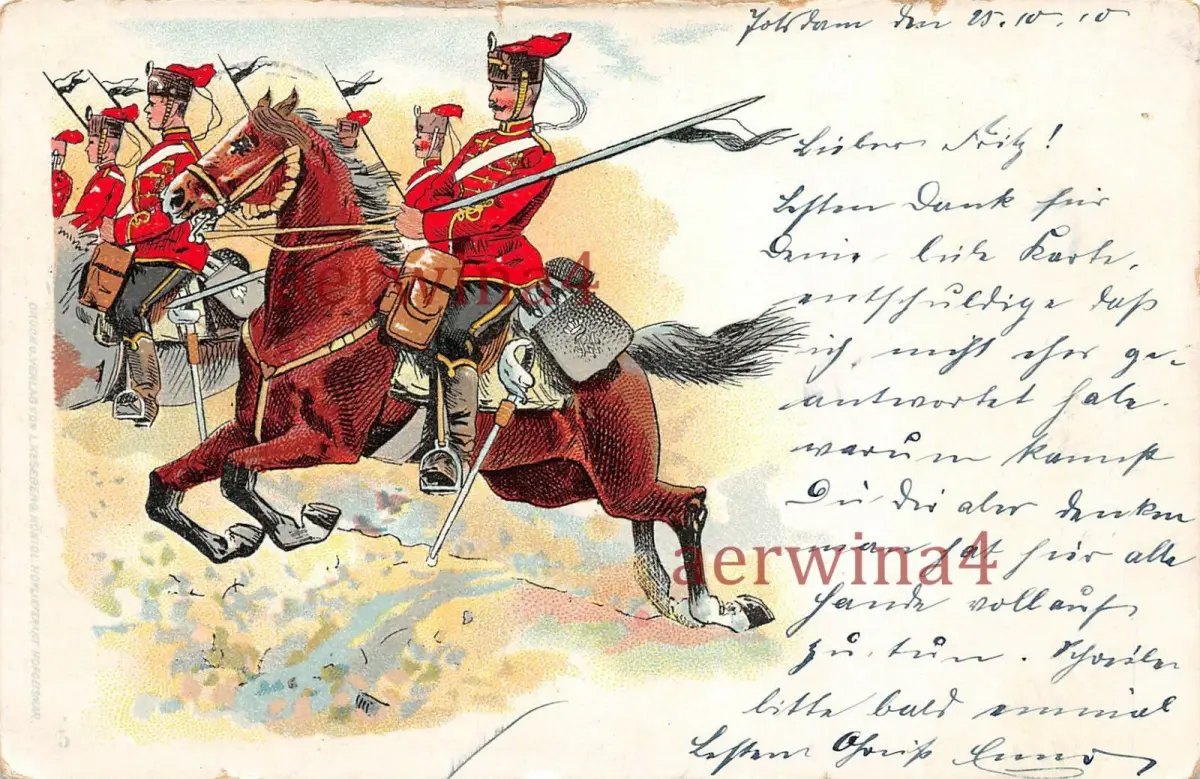 Potsdam den 25.10.10
Lieber Fritz!
Besten Dank für
Deine liebe Karte,
entschuldige daß
ich nicht eher ge-
antwortet habe.
warum kannst
Du Dir aber denken
man hat hier alle
Hände voll auf
zu tun. Schreibe
bitte bald einmal
Besten Gruß
aerwina4
aerwina4
DRUCK U. VERLAG VON